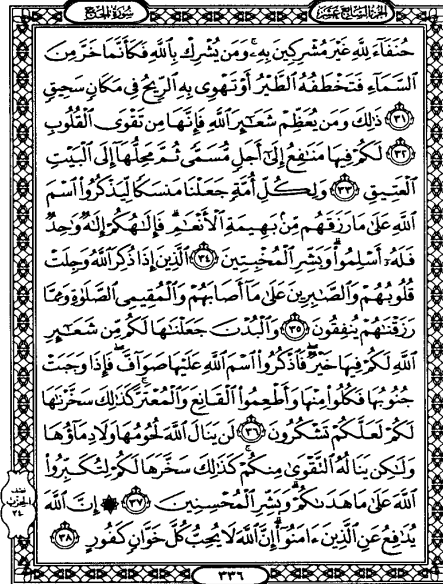 سُورَةُ الحَجِّ
الجُزْءُ السَّابِعَ عَشَرَ
حُنَفَآءَ لِلَّهِ غَيْرَ مُشْرِكِينَ بِهِۦ وَمَن يُشْرِكْ بِٱللَّهِ فَكَأَنَّمَا خَرَّ مِنَ
ٱلسَّمَآءِ فَتَخْطَفُهُ ٱلطَّيْرُ أَوْ تَهْوِى بِهِ ٱلرِّيحُ فِى مَكَانٍ سَحِيقٍ
٣١ ذَٰلِكَ وَمَن يُعَظِّمْ شَعَٰٓئِرَ ٱللَّهِ فَإِنَّهَا مِن تَقْوَى ٱلْقُلُوبِ
٣٢ لَكُمْ فِيهَا مَنَٰفِعُ إِلَىٰٓ أَجَلٍ مُّسَمًّى ثُمَّ مَحِلُّهَآ إِلَى ٱلْبَيْتِ
ٱلْعَتِيقِ ٣٣ وَلِكُلِّ أُمَّةٍ جَعَلْنَا مَنسَكًا لِّيَذْكُرُوا۟ ٱسْمَ
ٱللَّهِ عَلَىٰ مَا رَزَقَهُم مِّنۢ بَهِيمَةِ ٱلْأَنْعَٰمِ ۗ فَإِلَٰهُكُمْ إِلَٰهٌ وَٰحِدٌ
فَلَهُۥٓ أَسْلِمُوا۟ ۗ وَبَشِّرِ ٱلْمُخْبِتِينَ ٣٤ ٱلَّذِينَ إِذَا ذُكِرَ ٱللَّهُ وَجِلَتْ
قُلُوبُهُمْ وَٱلصَّٰبِرِينَ عَلَىٰ مَآ أَصَابَهُمْ وَٱلْمُقِيمِى ٱلصَّلَوٰةِ وَمِمَّا
رَزَقْنَٰهُمْ يُنفِقُونَ ٣٥ وَٱلْبُدْنَ جَعَلْنَٰهَا لَكُم مِّن شَعَٰٓئِرِ
ٱللَّهِ لَكُمْ فِيهَا خَيْرٌ ۖ فَٱذْكُرُوا۟ ٱسْمَ ٱللَّهِ عَلَيْهَا صَوَآفَّ ۖ فَإِذَا وَجَبَتْ
جُنُوبُهَا فَكُلُوا۟ مِنْهَا وَأَطْعِمُوا۟ ٱلْقَانِعَ وَٱلْمُعْتَرَّ ۚ كَذَٰلِكَ سَخَّرْنَٰهَا
لَكُمْ لَعَلَّكُمْ تَشْكُرُونَ ٣٦ لَن يَنَالَ ٱللَّهَ لُحُومُهَا وَلَا دِمَآؤُهَا
وَلَٰكِن يَنَالُهُ ٱلتَّقْوَىٰ مِنكُمْ ۚ كَذَٰلِكَ سَخَّرَهَا لَكُمْ لِتُكَبِّرُوا۟
ٱللَّهَ عَلَىٰ مَا هَدَىٰكُمْ ۗ وَبَشِّرِ ٱلْمُحْسِنِينَ ٣٧ ۞ إِنَّ ٱللَّهَ
يُدَٰفِعُ عَنِ ٱلَّذِينَ ءَامَنُوٓا۟ ۗ إِنَّ ٱللَّهَ لَا يُحِبُّ كُلَّ خَوَّانٍ كَفُورٍ ٣٨
نصف
الحزب
٣٤
٣٣٦